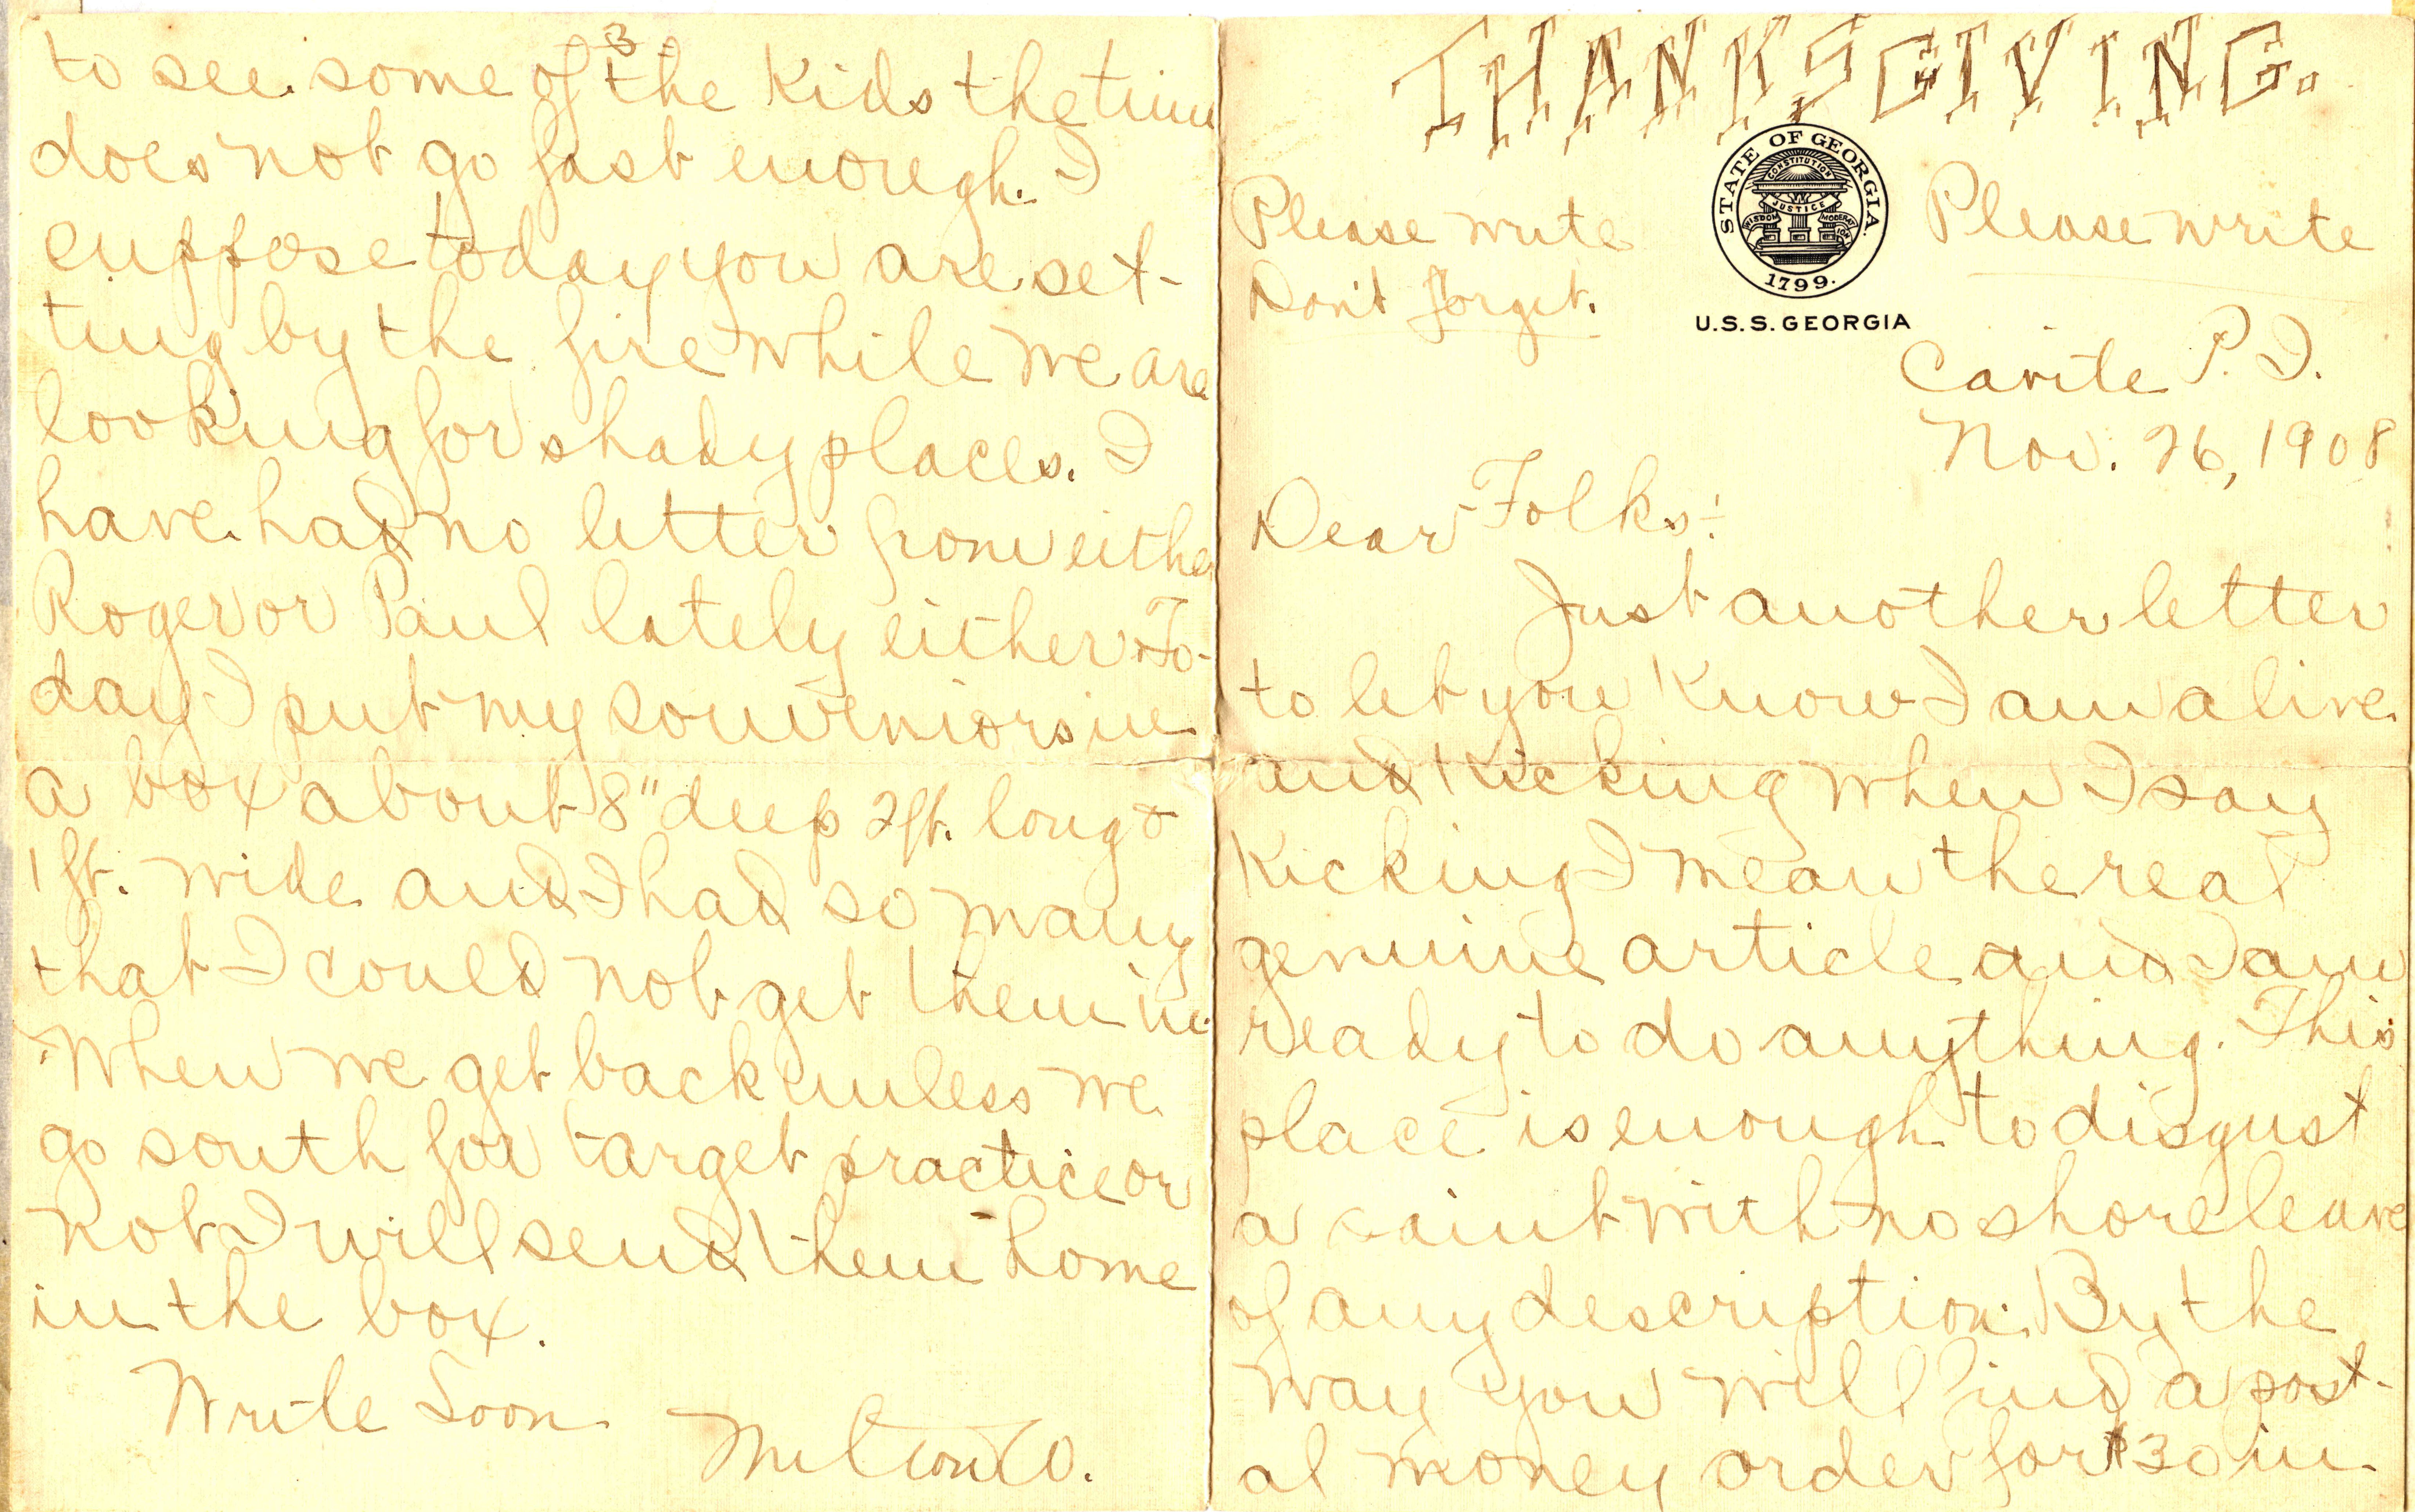 THANKSGIVING.
STATE OF GEORGIA.
CONSTITUTION
WISDOM
JUSTICE
MODERATION
1799.
U.S.S. GEORGIA
Please write
Don't forget.
Please write
Cavite P.I.
Nov. 26, 1908
Dear Folks:
Just another letter
to let you know I am alive
and Kicking when I say
Kicking I mean the real
genuine article and I am
ready to do anything. This
place is enough to disgust
a saint with no shore leave
of any description. By the
way you will find a post-
al money order for $30 in
3
to see some of the Kids the time
does not go fast enough. I
suppose today you are set-
ting by the fire while we are
looking for shady places. I
have had no letter from either
Roger or Paul lately either. To-
day I put my souveniors in
a box about 8" deep 2ft. long &
1 ft. wide and I had so many
that I could not get them in.
When we get back unless we
go south for target practice or
not I will send them home
in the box.
Write Soon
Milton O.